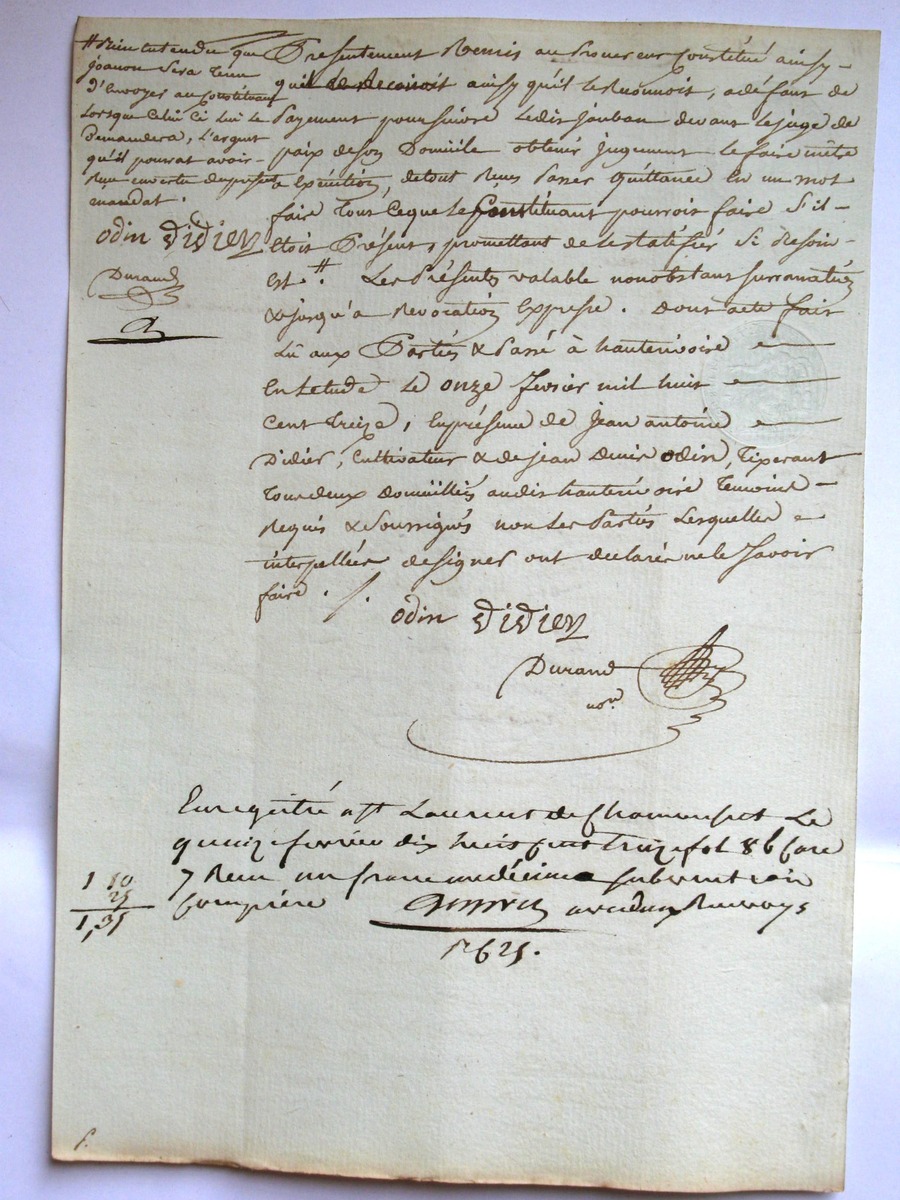 # Bien entendu que
joanon Sera tenu
d'Envoyer au Constituant
Lorsque Celui Ci Lui le
Demandera, L'argent
qu'il pourrat avoir
Reçu en vertu du present
mandat.
odin Didier
Durand
Presentement Remis au Procureur Constitué ainsy
qu'il le Reconoit ainsy qu'il le Reconnoit, a défaut de
Payement poursuivre Ledit Jauban devant le juge de
paix de son Domicile obtenir jugement le faire mêtre
a Exécution, de tout Reçus Passer quittance En un mot
faire Tout Ceque le Constituant pourroit faire S'il
Etoit Présent, promettant de le ratifier Si Besoin
Est #. Les Présentes valable nonobstant surrannation
& jusqu'a Revocation Expresse. Dont acte fait
Lû aux Parties & Passé à hauterivoire
En L'etude Le onze fevrier mil huit
Cent Treize, En présence de Jean antoine
Didier, Cultivateur & de jean Denis odin, Tisserant
Tous deux Domiciliés audit hauterivoire Temoins
Requis & Soussignés non Les Parties Lesquelles
interpellées de signer ont declaré ne le Savoir
faire ./.
odin Didier
Durand
nore
Enregistré a st Laurent de Chamousset Le
quinze fevrier dix huit cent treize fol 86 Case
7 Reçu un franc un décime subvention
Comprise
1 10
25
1,35
1 f 25.